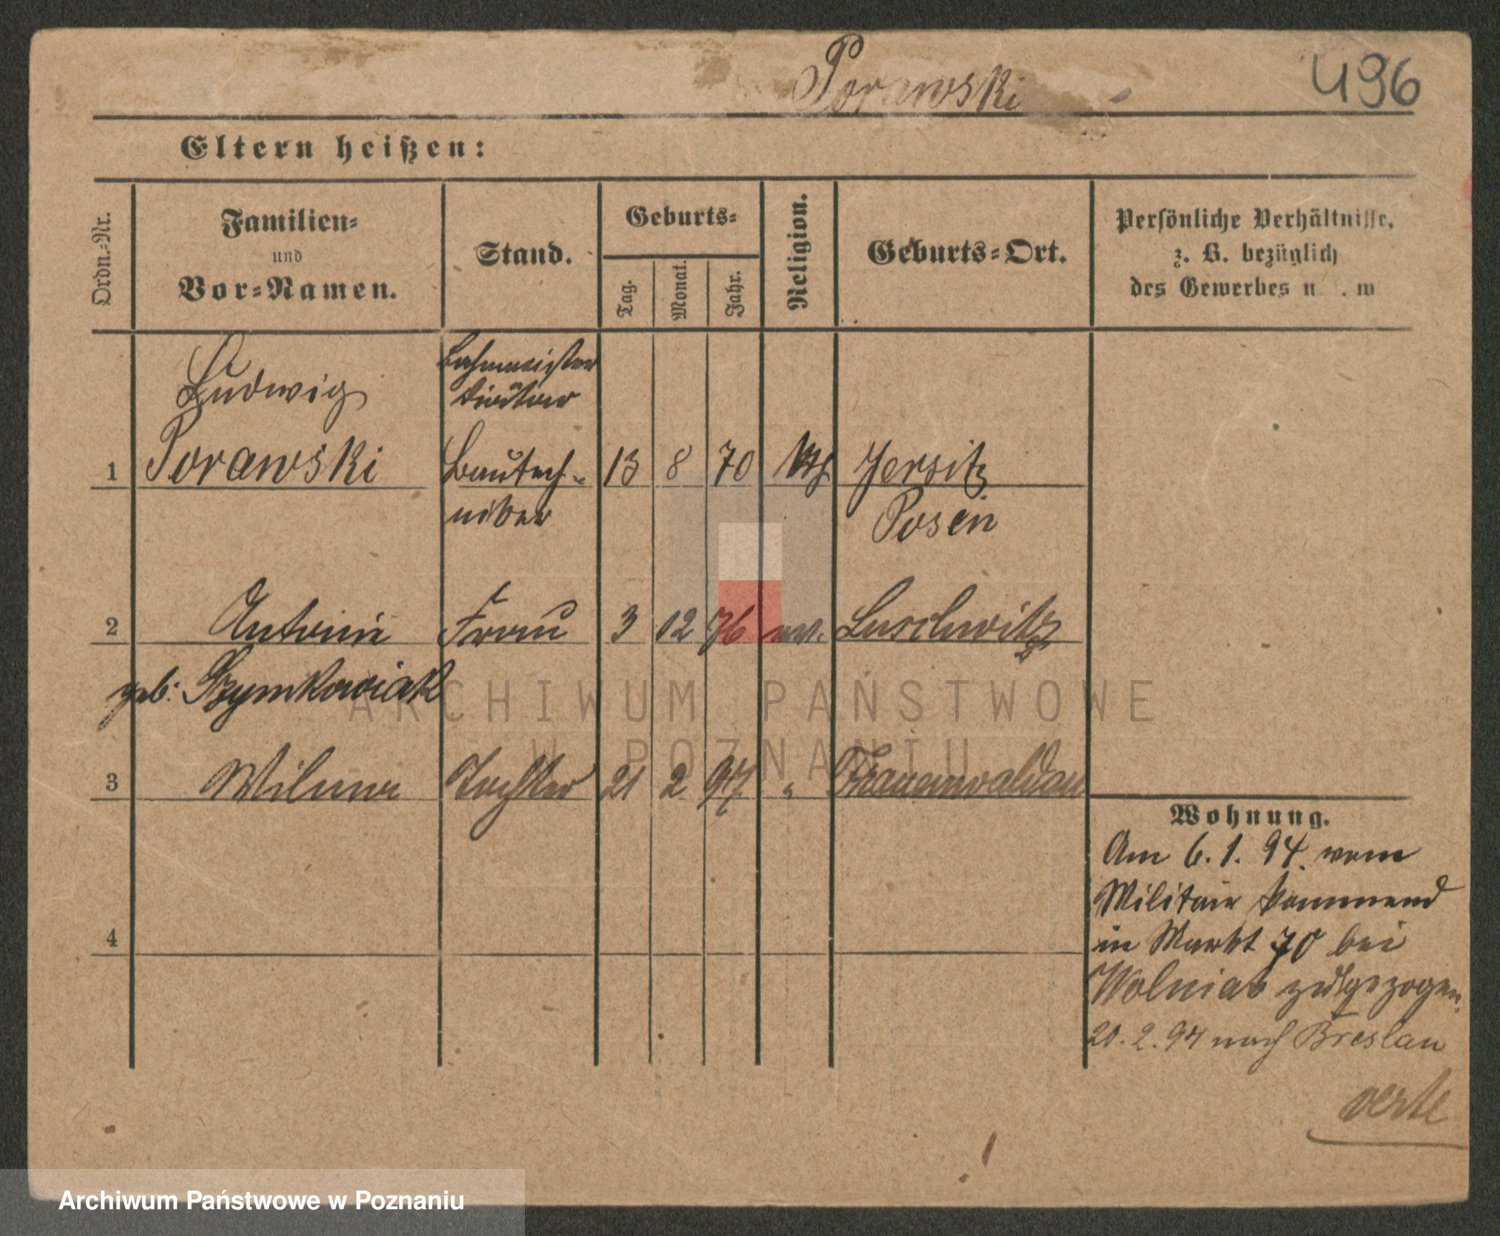 Porawski
496
Eltern heißen:
Ordn.-Nr.
Familien-
und
Vor-Namen.
Stand.
Geburts-
Tag.
Monat.
Jahr.
Religion.
Geburts-Ort.
Persönliche Verhältnisse,
z. B. bezüglich
des Gewerbes u. s. w
Ludwig
Porawski
Bahnmeister
Diätar
Bautech-
niker
1
13 8 70 kth Jersitz
Posen
2 Antonie Frau 3 12 76 ev. Luschwitz
geb: Szymkowiak
3 Tochter 21 2 97 " Frauenwaldau
4
Wohnung.
Am 6. 1. 94. vom
Militair kommend
in Markt 70 bei
Wolniak zugezogen.
20. 2. 94 nach Breslau
verte
ARCHIWUM PAŃSTWOWE
W POZNANIU
Archiwum Państwowe w Poznaniu